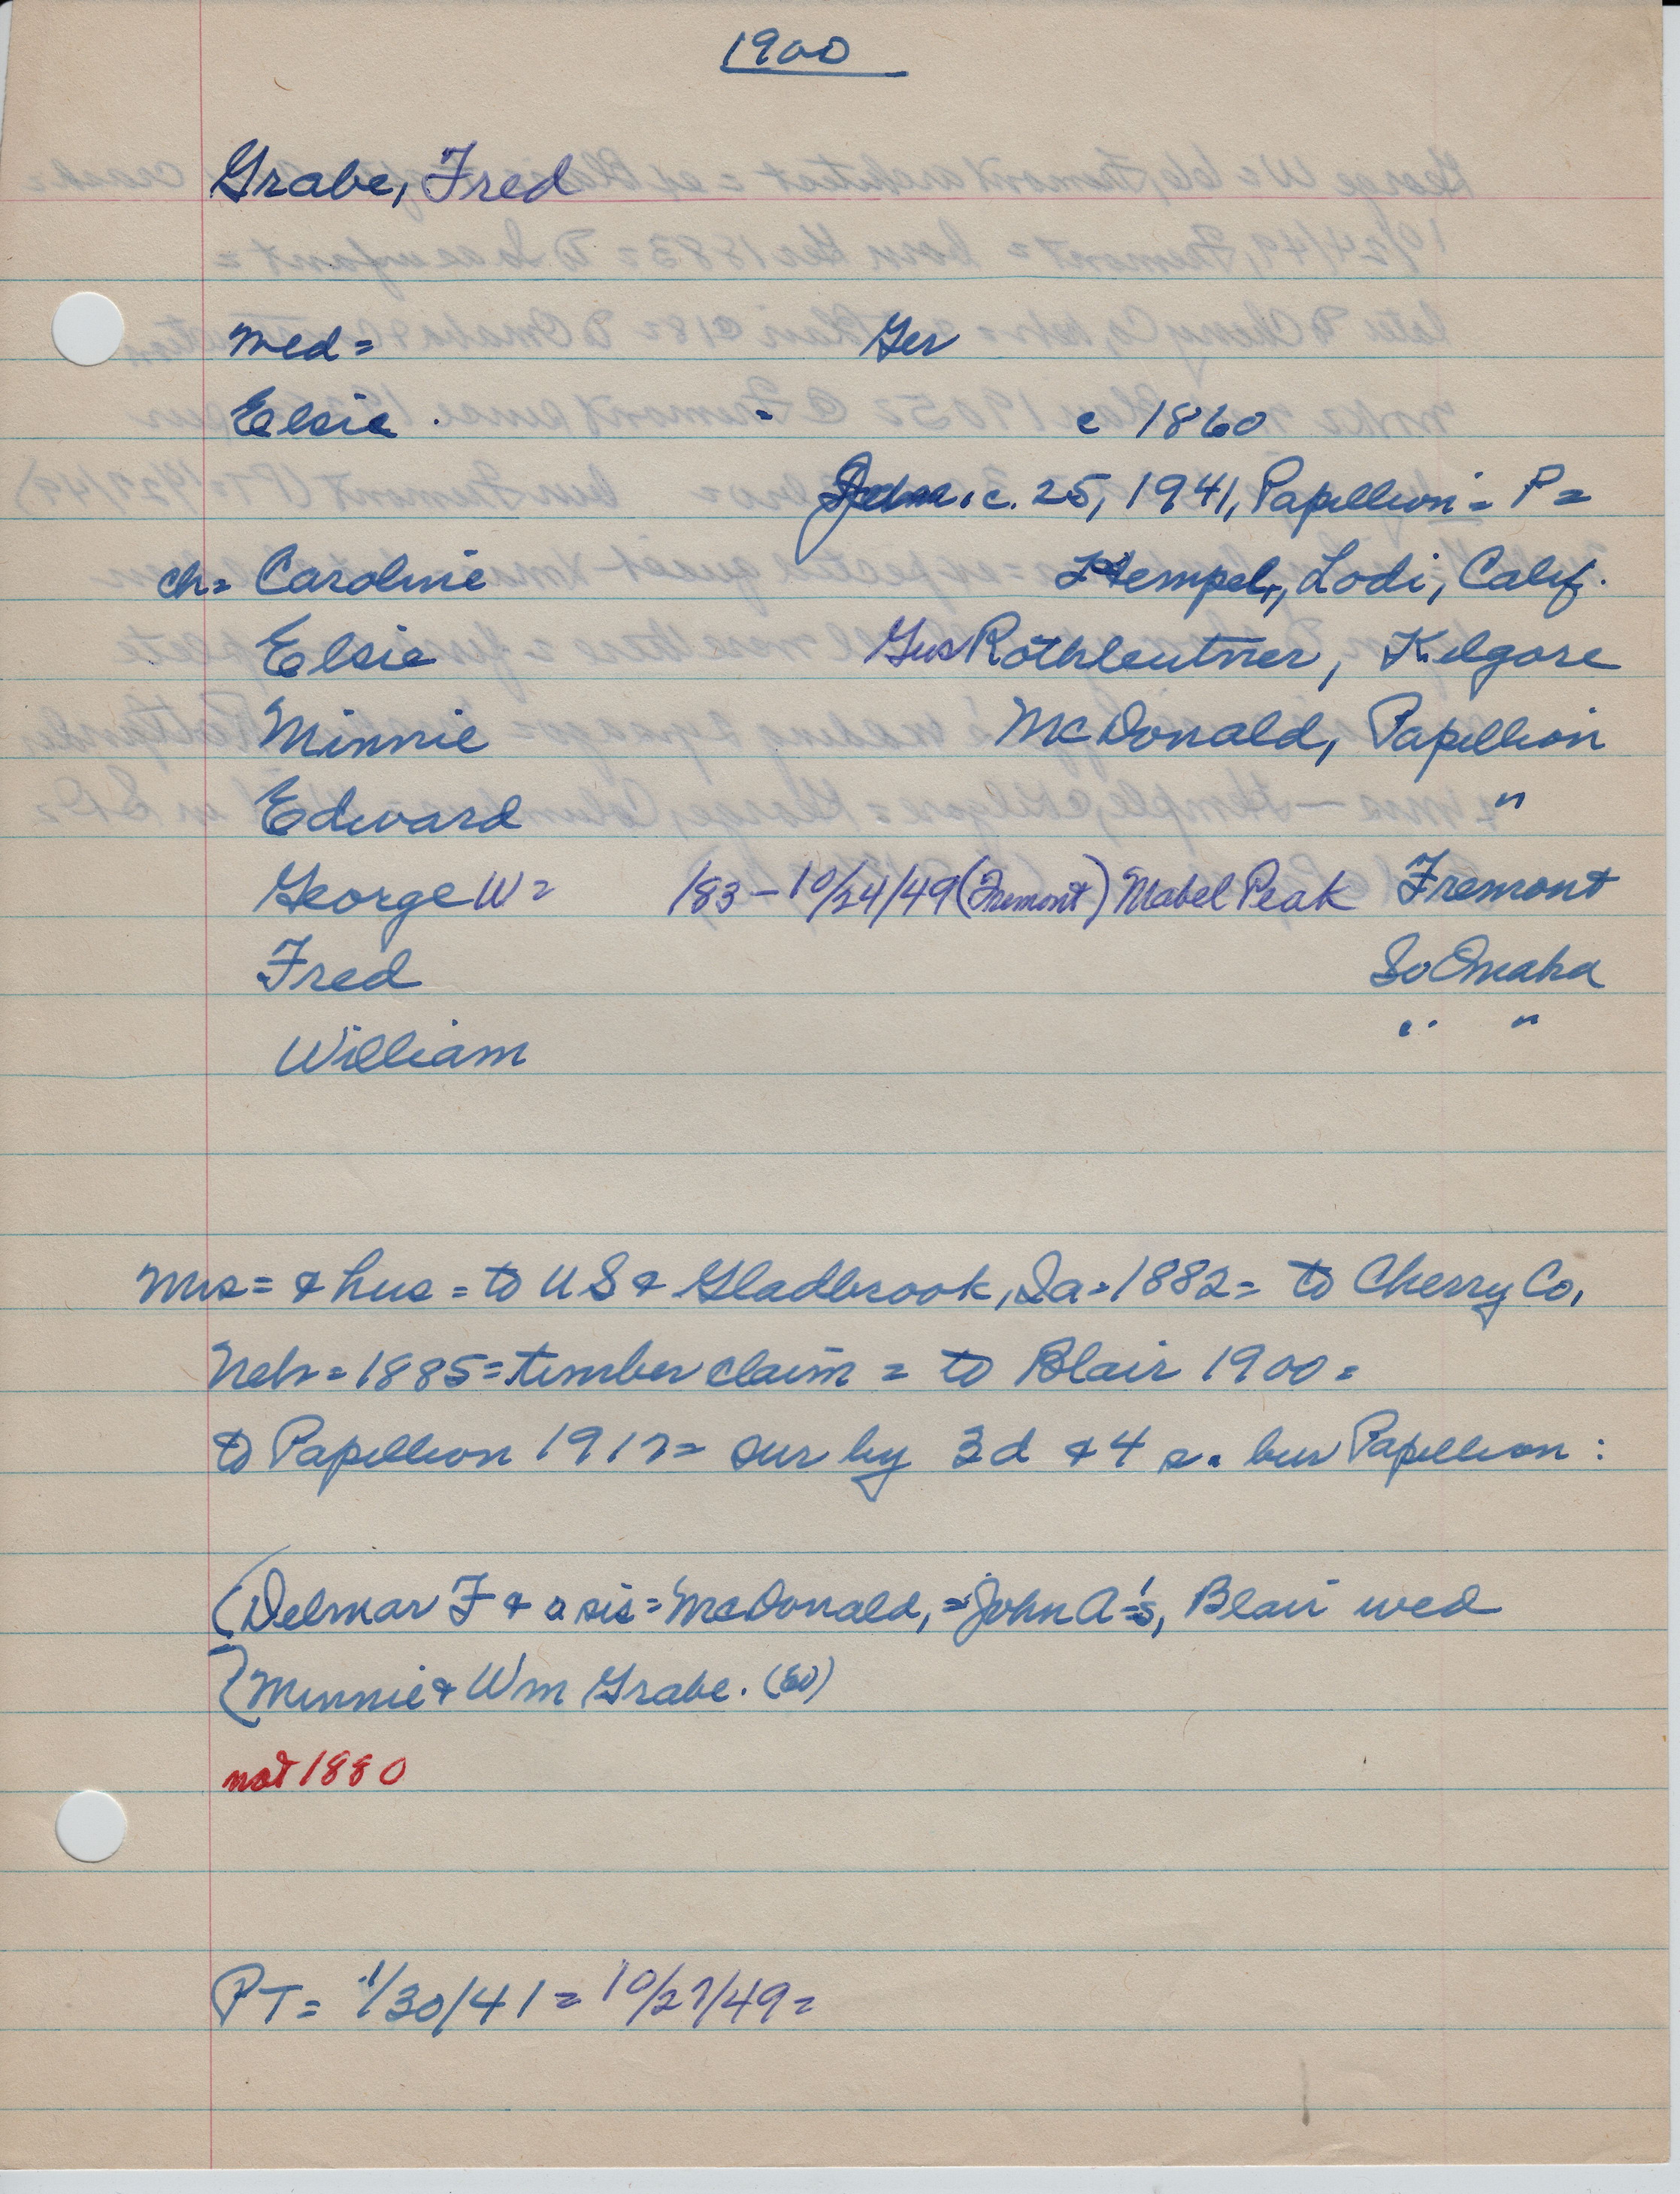 1900
Grabe, Fred
wed = Ger
Elsie . = c 1860
Jan. c. 25, 1941, Papillion = P =
ch = Caroline Hempel, Lodi, Calif.
Elsie Gus Rothleutner, Kilgore
Minnie McDonald, Papillion
Edward "
George W = /83 - 10/24/49 (Fremont) Mabel Peak Fremont
Fred So Omaha
William " "
Mrs = & hus = to US & Gladbrook, Ia = 1882 = to Cherry Co,
Neb = 1885 = timber claim = to Blair 1900 =
to Papillion 1917 = sur by 3 d & 4 s. bur Papillion :
(Delmar F & a sis = McDonald, = John A's, Blair wed
Minnie & Wm Grabe. (Ed)
not 1880
PT = 1/30/41 = 10/27/49 =